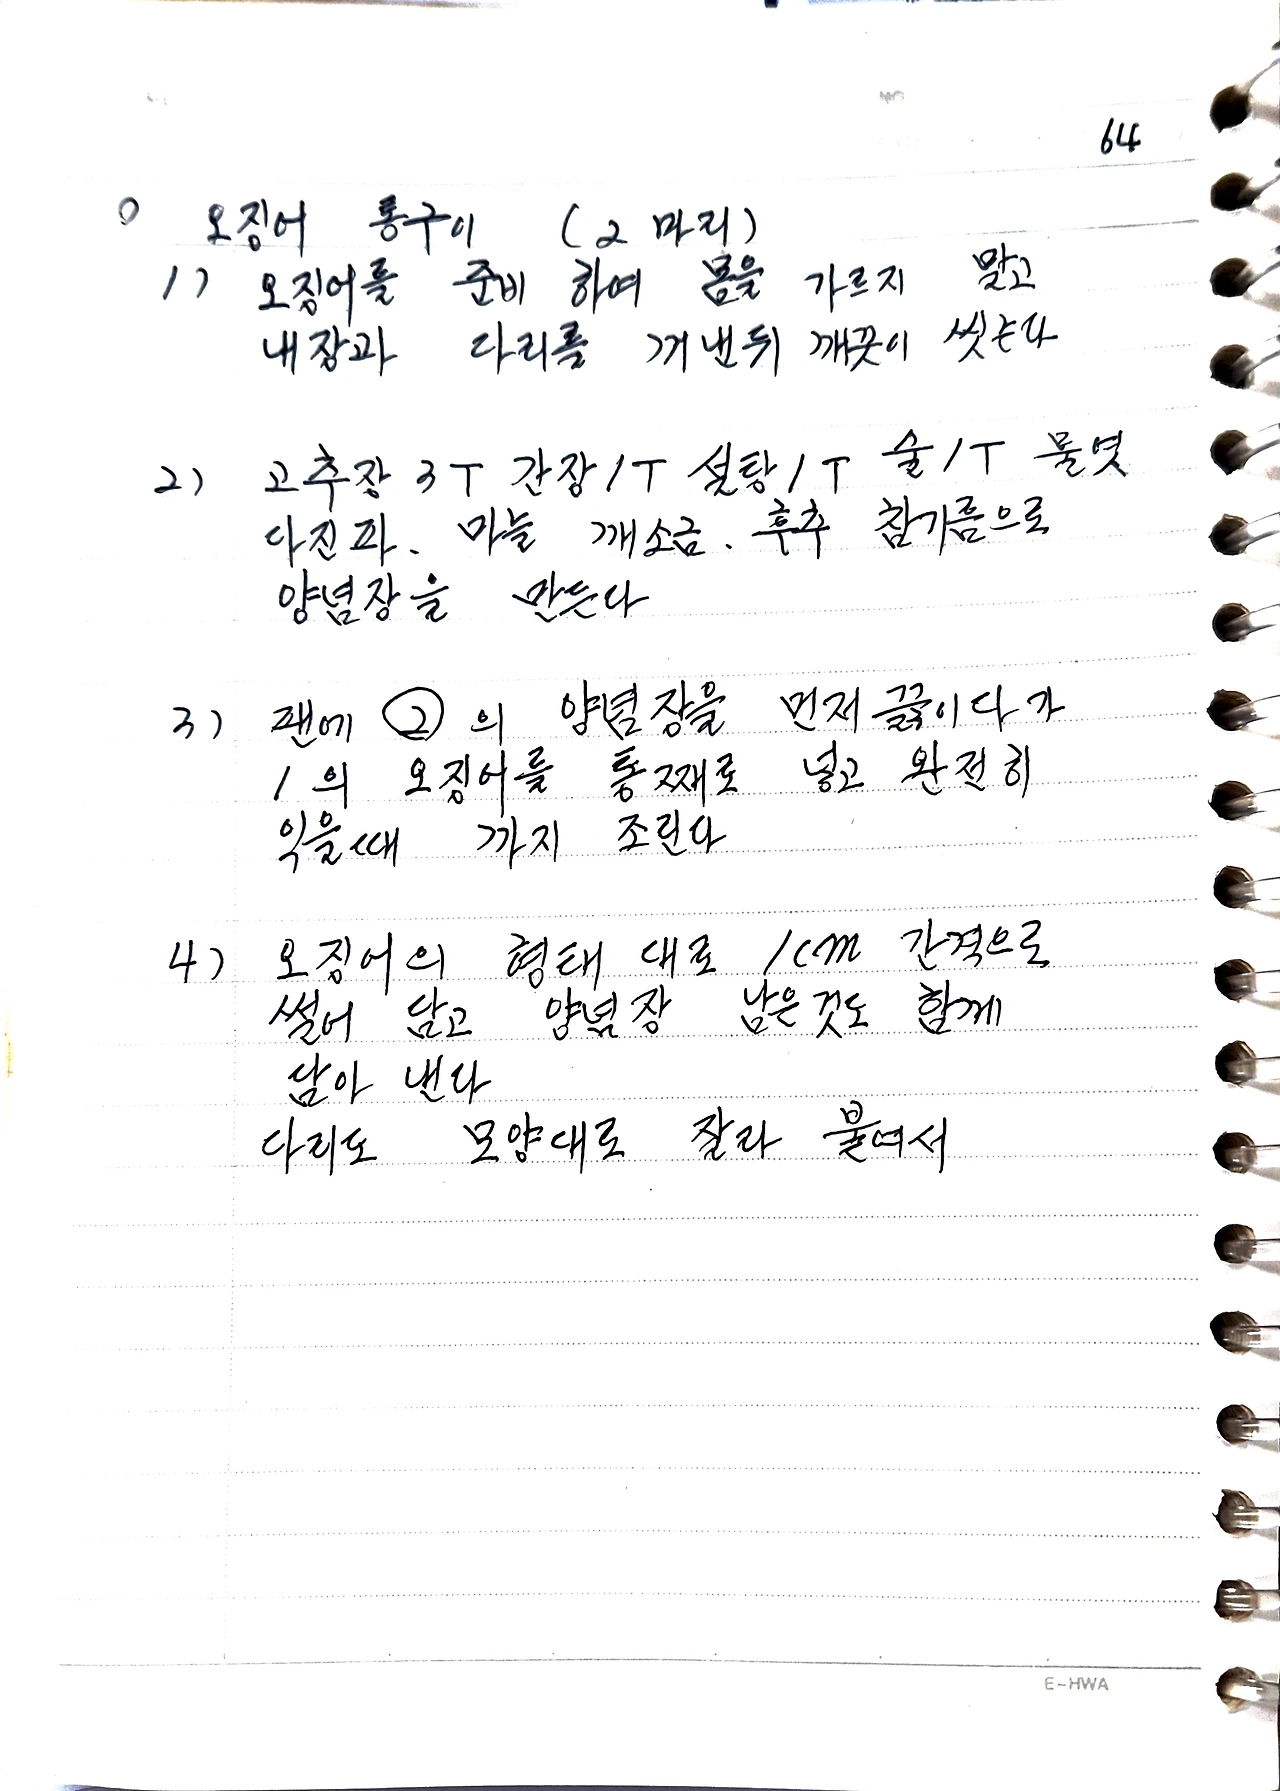 64
○ 오징어 통구이 (2마리)
1) 오징어를 준비 하여 몸을 가르지 말고
내장과 다리를 꺼낸뒤 깨끗이 씻는다
2) 고추장 3T 간장 1T 설탕 1T 술 1T 물엿
다진파. 마늘 깨소금. 후추 참기름으로
양념장을 만든다
3) 팬에 ②의 양념장을 먼저 끓이다가
1의 오징어를 통째로 넣고 완전히
익을때 까지 조린다
4) 오징어의 형태 대로 1cm 간격으로
썰어 담고 양념장 남은것도 함께
담아 낸다
다리도 모양대로 잘라 붙여서
E-HWA